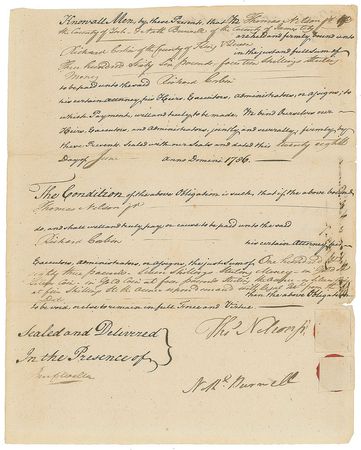 Know all Men, by these Presents, that We Thomas Nelson Jr of
the County of York & Nath Burwell of the County of James City
are held and firmly bound unto
Richard Corbin of the County of King & Queen
in the just and full Sum of
Three hundred Sixty Six pounds, fourteen Shillings Sterling
Money
to be paid unto the said Richard Corbin
his certain Attorney, his Heirs, Executors, Administrators, or Assigns; to
which Payment, well and truly to be made. We bind Ourselves our
Heirs, Executors, and Administrators, jointly and severally, firmly, by
these Presents. Sealed with our Seals and dated this twenty eighth
Day of June Anno Domini 1786.
The Condition of the above Obligation is such, that if the above bound
Thomas Nelson Jr
do, and shall well and truly pay or cause to be paid unto the said
Richard Corbin
his certain Attorney, his
Executors, Administrators, or Assigns, the just Sum of One hund
three pounds Seven Shillings Sterling Money
in Gold Coin at four pounds
five Shillings
then the above Obligation
to be void, or else to remain in full Force and Virtue
Sealed and Delivered
In the Presence of
Thos Nelson Jr
N Burwell